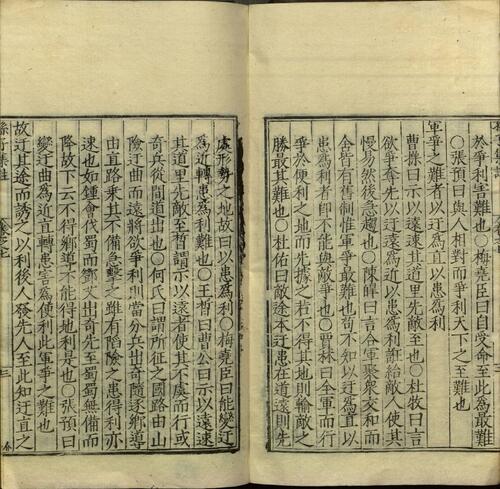 於爭利害難也〇梅堯臣曰自受命至此爲最難
〇張預曰與人相對而爭利天下之至難也
軍爭之難者以迂爲直以患爲利
曹操曰示以遠速其道里先敵至也〇杜牧曰言
欲爭奪先以迂遠爲近以患爲利誑紿敵人使其
慢易然後急趨也〇陳皥曰言合軍聚衆交和而
舍皆有舊制惟軍爭最難也苟不知以迂爲直以
患爲利者即不能與敵爭也〇賈林曰全軍而行
爭於便利之地而先據之若不得其地則輸敵之
勝最其難也〇杜佑曰敵途本迂患在道遠則先
處形勢之地故曰以患爲利〇梅堯臣曰能變迂
爲近轉患爲利難也〇王晳曰曹公曰示以遠速
其道里先敵至晳謂示以遠者使其不虞而行或
奇兵從間道出也〇何氏曰謂所征之國路由山
險迂曲而遠將欲爭利則當分兵出奇隨逐鄉導
由直路乘其不備急擊之雖有陷險之患得利亦
速也如鍾會伐蜀而鄧艾出奇先至蜀蜀無備而
降故下云不得鄉導不能得地利是也〇張預曰
變迂曲爲近直轉患害爲便利此軍爭之難也
故迂其途而誘之以利後人發先人至此知迂直之
三